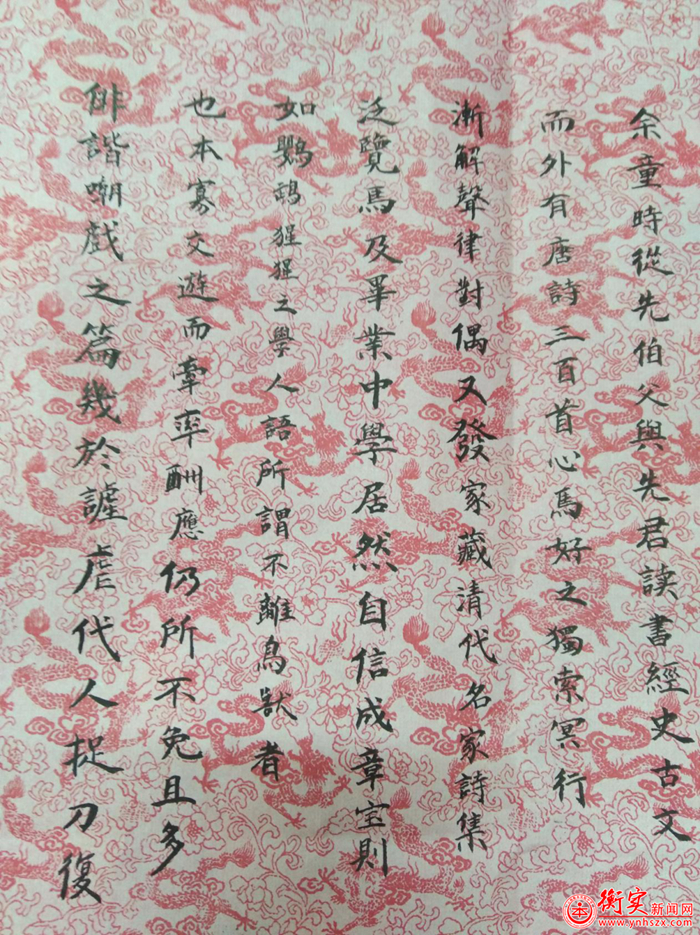 余童時從先伯父與先君读書經史古文
而外有唐詩三百首心馬好之獨索冥行
漸解聲律對偶又發家藏清代名家詩集
泛覽馬及畢業中學居然自信成章宝則
如鸚鵡猩猩之學人語所謂不離鳥獸者
也本寡文遊而牽率酬應仍所不免且多
俳諧嘲戲之篇幾於謔虐代人捉刀復
衡实新闻网
www.ynhszx.com